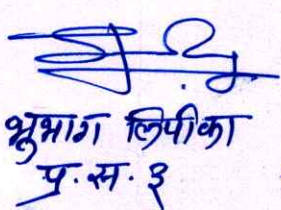 भुभाग लिपीका
प्र. स. ३